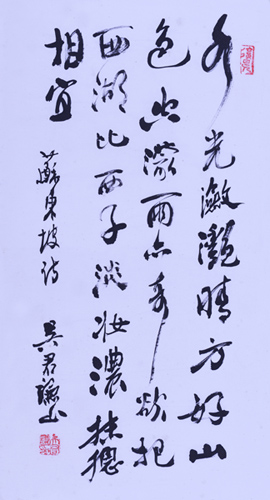 水光潋灧晴方好山
色空濛雨亦奇欲把
西湖比西子淡妆濃抹總
相宜
蘇東坡诗
吴君